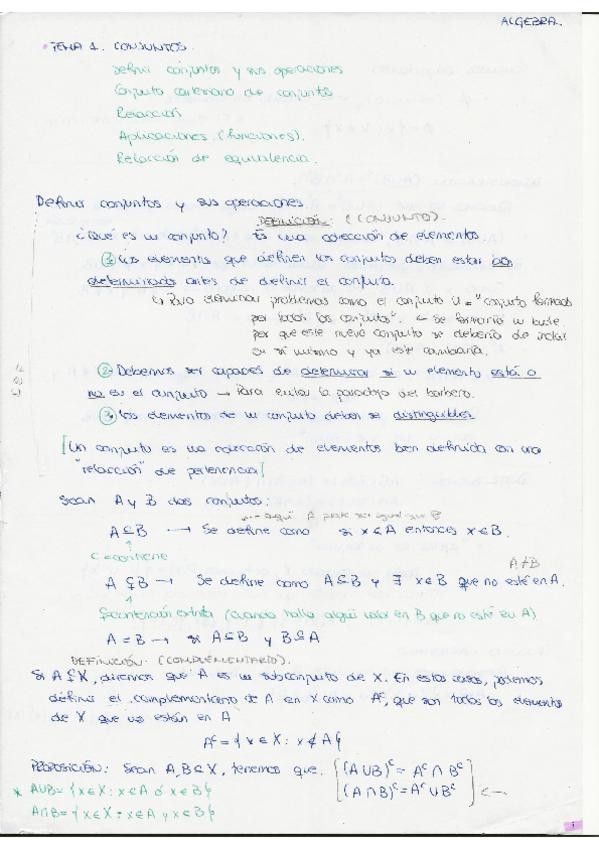 ALGEBRA.
• TEMA 1. CONJUNTOS.
Definir conjuntos y sus operaciones
Conjunto cartesiano de conjunto
Relacción
Aplicaciones (funciones).
Relacción de equivalencia.
Definir conjuntos y sus operaciones.
DEFINICIÓN: (CONJUNTO).
¿Qué es un conjunto? Es una colección de elementos.
① Los elementos que definen los conjuntos deben estar
determinados antes de definir el conjunto.
↳ Para eliminar problemas como el conjunto U = "conjunto formado
por todos los conjuntos". ← Se formaría un bucle
por que este nuevo conjunto se debería de incluir
a sí mismo y ya este cambiaría.
② Debemos ser capaces de determinar si un elemento está o
no en el conjunto → Para evitar la paradoja del barbero.
③ Los elementos de un conjunto deben ser distinguibles
[Un conjunto es una colección de elementos bien definida con una
"relacción" de pertenencia]
Sean A y B dos conjuntos:
aquí A puede ser igual que B
A ⊆ B → Se define como si x ∈ A entonces x ∈ B.
contiene
A ≠ B
A ⊊ B → Se define como A ⊆ B y ∃ x ∈ B que no esté en A.
(cuando halla algún valor en B que no esté en A)
A = B → si A ⊆ B y B ⊆ A
DEFINICIÓN: (COMPLEMENTARIO).
Si A ⊆ X, diremos que A es un subconjunto de X. En estos casos, podemos
definir el complementario de A en X como Aᶜ, que son todos los elementos
de X que no están en A
Aᶜ = { x ∈ X : x ∉ A }
PROPOSICIÓN: Sean A, B ⊆ X, tenemos que: (A ∪ B)ᶜ = Aᶜ ∩ Bᶜ
* A∪B = { x ∈ X : x ∈ A ó x ∈ B } (A ∩ B)ᶜ = Aᶜ ∪ Bᶜ ←
A∩B = { x ∈ X : x ∈ A y x ∈ B }
1